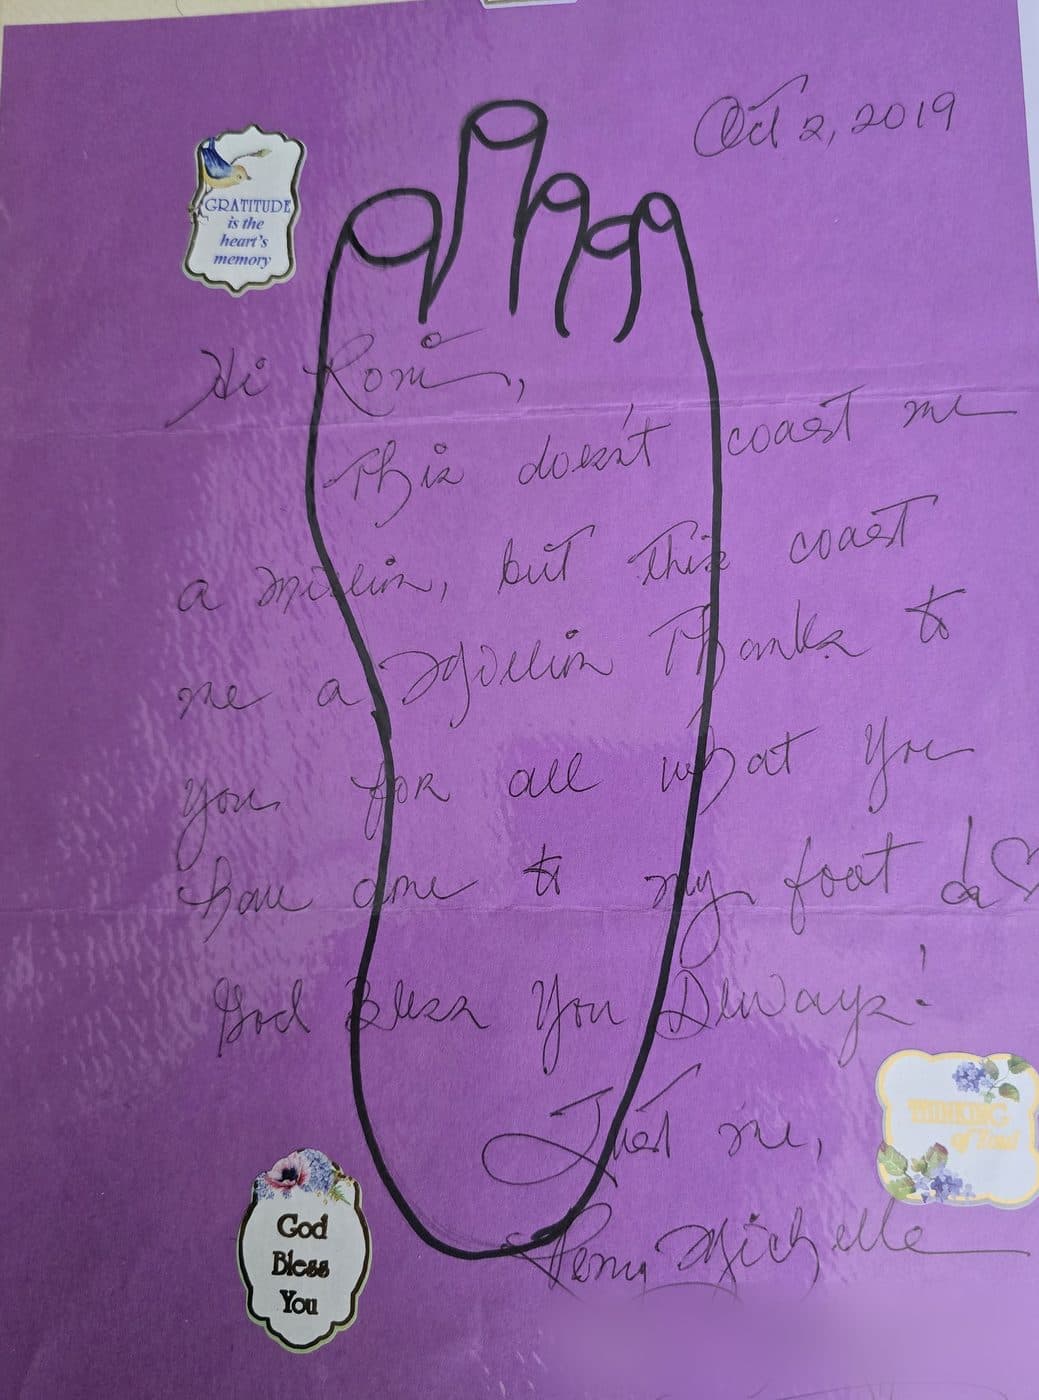 Oct 2, 2019
GRATITUDE
is the
heart's
memory
Hi Roni,
This doesn't coast me
a million, but this coast
me a million Thanks to
you for all what you
have done to my foot!
God Bless You Always!
Just me,
Michelle
THINKING
of You!
God
Bless
You